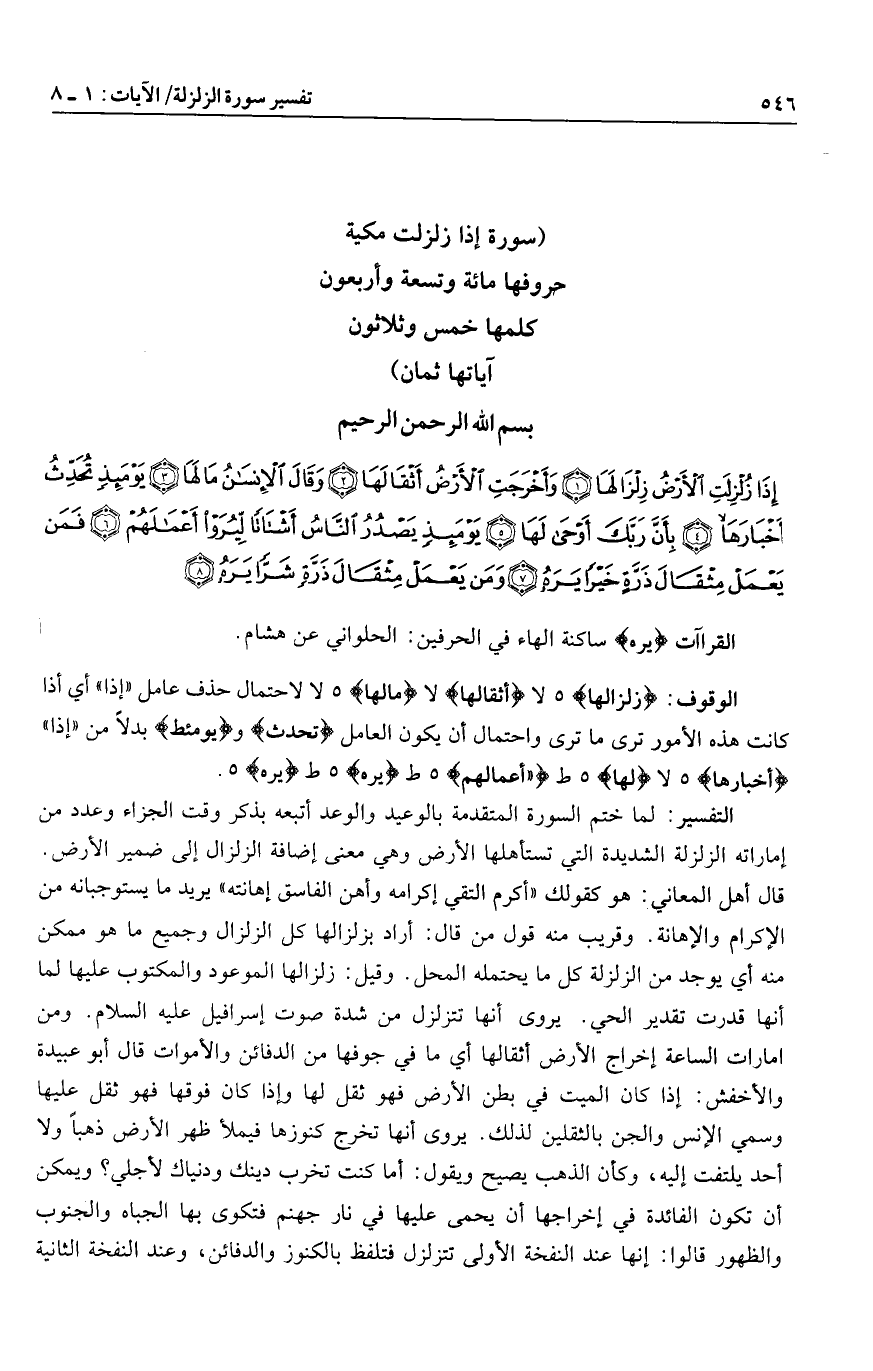 ٥٤٦
تفسير سورة الزلزلة/ الآيات: ١ ـ ٨
(سورة إذا زلزلت مكية
حروفها مائة وتسعة وأربعون
كلمها خمس وثلاثون
آياتها ثمان)
بسم الله الرحمن الرحيم
إِذَا زُلْزِلَتِ ٱلْأَرْضُ زِلْزَالَهَا ۝١ وَأَخْرَجَتِ ٱلْأَرْضُ أَثْقَالَهَا ۝٢ وَقَالَ ٱلْإِنسَٰنُ مَا لَهَا ۝٣ يَوْمَئِذٍ تُحَدِّثُ
أَخْبَارَهَا ۝٤ بِأَنَّ رَبَّكَ أَوْحَىٰ لَهَا ۝٥ يَوْمَئِذٍ يَصْدُرُ ٱلنَّاسُ أَشْتَاتًا لِّيُرَوْا۟ أَعْمَٰلَهُمْ ۝٦ فَمَن
يَعْمَلْ مِثْقَالَ ذَرَّةٍ خَيْرًا يَرَهُۥ ۝٧ وَمَن يَعْمَلْ مِثْقَالَ ذَرَّةٍ شَرًّا يَرَهُۥ ۝٨
القراآت ﴿يره﴾ ساكنة الهاء في الحرفين: الحلواني عن هشام.
الوقوف: ﴿زلزالها﴾ ٥ لا ﴿أثقالها﴾ لا ﴿مالها﴾ ٥ لا لاحتمال حذف عامل «إذا» أي أذا
كانت هذه الأمور ترى ما ترى واحتمال أن يكون العامل ﴿تحدث﴾ و﴿يومئط﴾ بدلاً من «إذا»
﴿أخبارها﴾ ٥ لا ﴿لها﴾ ٥ ط ﴿«أعمالهم﴾ ٥ ط ﴿يره﴾ ٥ ط ﴿يره﴾ ٥.
التفسير: لما ختم السورة المتقدمة بالوعيد والوعد أتبعه بذكر وقت الجزاء وعدد من
إماراته الزلزلة الشديدة التي تستأهلها الأرض وهي معنى إضافة الزلزال إلى ضمير الأرض.
قال أهل المعاني: هو كقولك «أكرم التقي إكرامه وأهن الفاسق إهانته» يريد ما يستوجبانه من
الإكرام والإهانة. وقريب منه قول من قال: أراد بزلزالها كل الزلزال وجميع ما هو ممكن
منه أي يوجد من الزلزلة كل ما يحتمله المحل. وقيل: زلزالها الموعود والمكتوب عليها لما
أنها قدرت تقدير الحي. يروى أنها تتزلزل من شدة صوت إسرافيل عليه السلام. ومن
امارات الساعة إخراج الأرض أثقالها أي ما في جوفها من الدفائن والأموات قال أبو عبيدة
والأخفش: إذا كان الميت في بطن الأرض فهو ثقل لها وإذا كان فوقها فهو ثقل عليها
وسمي الإنس والجن بالثقلين لذلك. يروى أنها تخرج كنوزها فيملأ ظهر الأرض ذهباً ولا
أحد يلتفت إليه، وكأن الذهب يصيح ويقول: أما كنت تخرب دينك ودنياك لأجلي؟ ويمكن
أن تكون الفائدة في إخراجها أن يحمى عليها في نار جهنم فتكوى بها الجباه والجنوب
والظهور قالوا: إنها عند النفخة الأولى تتزلزل فتلفظ بالكنوز والدفائن، وعند النفخة الثانية